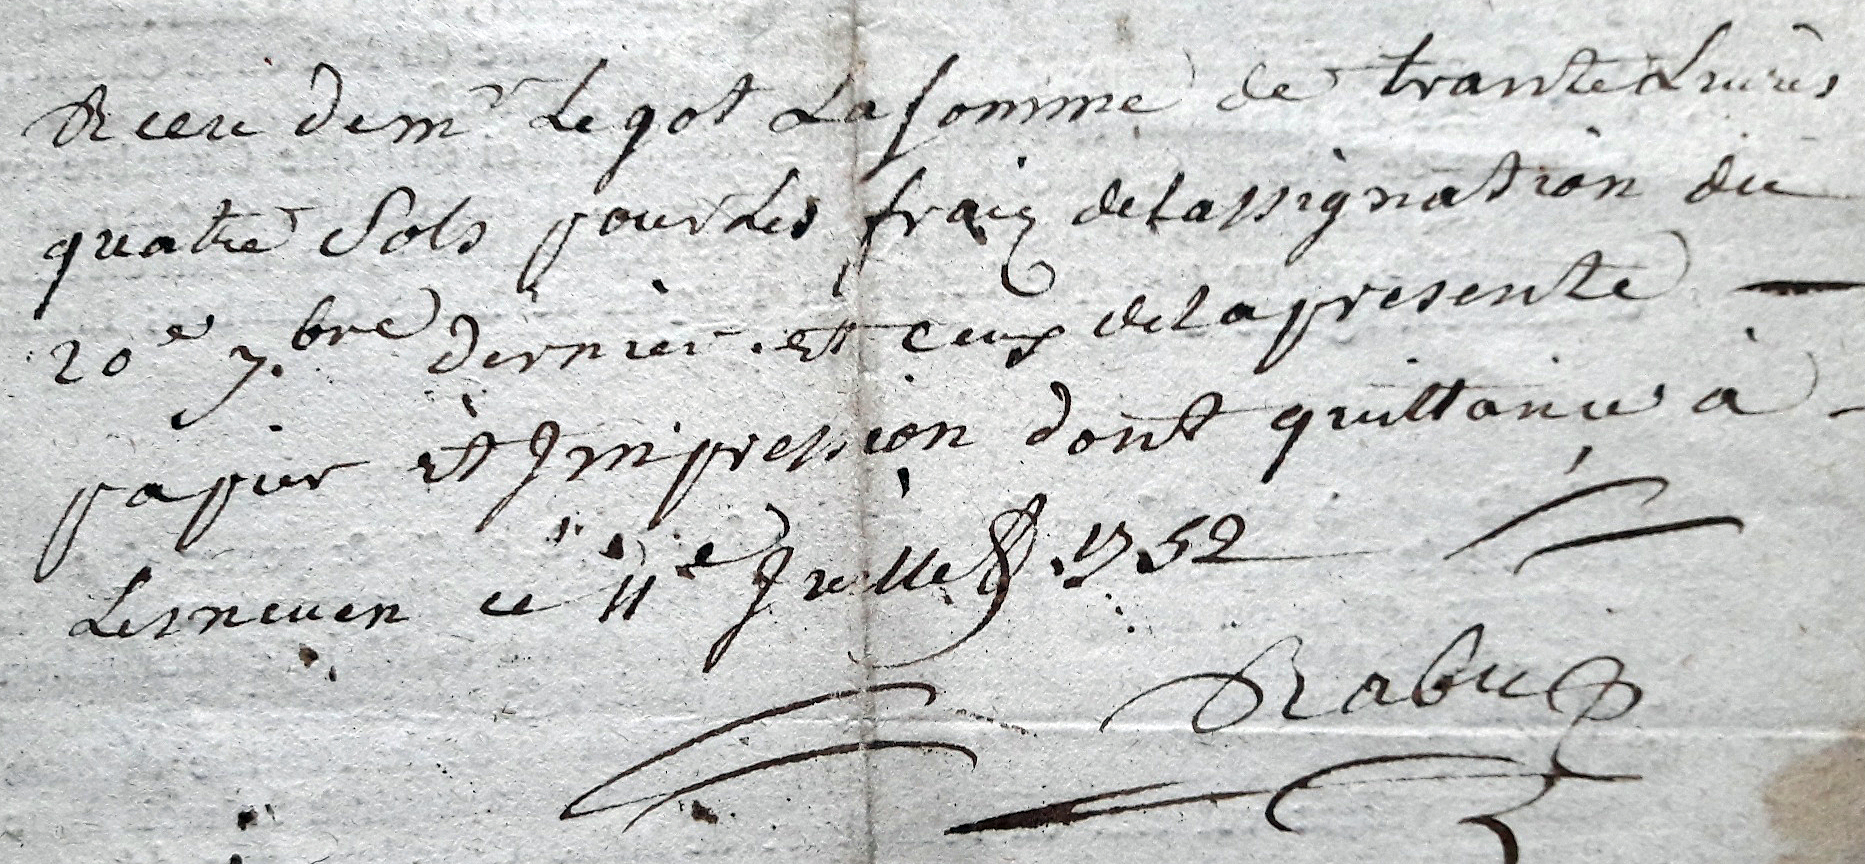 Receu de mr Legot La somme de trante Livres
quatre Sols pour Les fraix de Lassignation du
20e 7.bre dernier et ceux de La presente
papier et Jmpression dont quittance à
Lesneven ce 11e Juillet 1752
Rabu